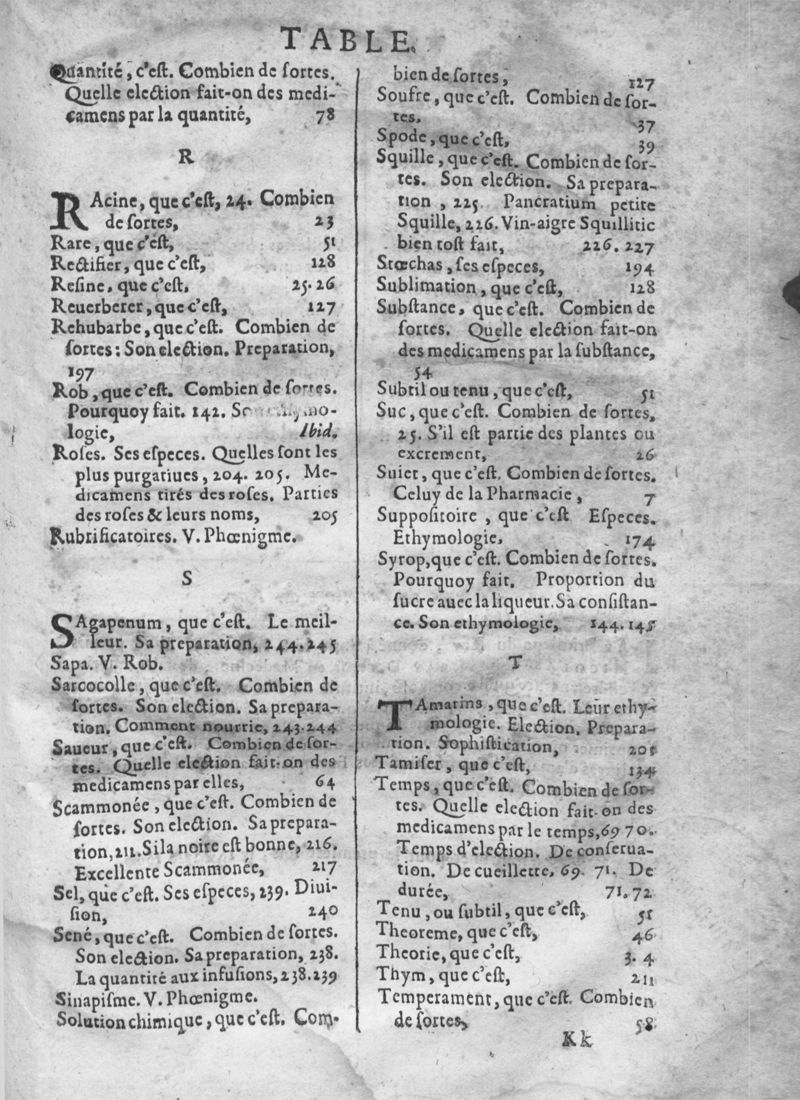 TABLE.
Quantité, c'eſt. Combien de ſortes.
Quelle election fait-on des medi-
camens par la quantité, 78
R
RAcine, que c'eſt, 24. Combien
de ſortes, 23
Rare, que c'eſt, 51
Rectifier, que c'eſt, 128
Reſine, que c'eſt, 25.26
Reuerberer, que c'eſt, 127
Rehubarbe, que c'eſt. Combien de
ſortes: Son election. Preparation,
197
Rob, que c'eſt. Combien de ſortes.
Pourquoy fait. 142. So
logie, Ibid.
Roſes. Ses eſpeces. Quelles ſont les
plus purgatiues, 204. 205. Me-
dicamens tirés des roſes. Parties
des roſes & leurs noms, 205
Rubrificatoires. V. Phœnigme.
S
SAgapenum, que c'eſt. Le meil-
leur. Sa preparation, 244.245
Sapa. V. Rob.
Sarcocolle, que c'eſt. Combien de
ſortes. Son election. Sa prepara-
tion. Comment nourrie, 243.244
Saueur, que c'eſt. Combien de ſor-
tes. Quelle election fait-on des
medicamens par elles, 64
Scammonée, que c'eſt. Combien de
ſortes. Son election. Sa prepara-
tion, 211. Si la noire eſt bonne, 216.
Excellente Scammonée, 217
Sel, que c'eſt. Ses eſpeces, 239. Diui-
ſion, 240
Sené, que c'eſt. Combien de ſortes.
Son election. Sa preparation, 238.
La quantité aux infuſions, 238.239
Sinapiſme. V. Phœnigme.
Solution chimique, que c'eſt. Com-
bien de ſortes, 127
Soufre, que c'eſt. Combien de ſor-
tes. 37
Spode, que c'eſt, 39
Squille, que c'eſt. Combien de ſor-
tes. Son election. Sa prepara-
tion, 225. Pancratium petite
Squille, 226. Vin-aigre Squillitic
bien toſt fait, 226.227
Stœchas, ſes eſpeces, 194
Sublimation, que c'eſt, 128
Subſtance, que c'eſt. Combien de
ſortes. Quelle election fait-on
des medicamens par la ſubſtance,
54
Subtil ou tenu, que c'eſt, 51
Suc, que c'eſt. Combien de ſortes.
25. S'il eſt partie des plantes ou
excrement, 26
Suiet, que c'eſt. Combien de ſortes.
Celuy de la Pharmacie, 7
Suppoſitoire, que c'eſt Eſpeces.
Ethymologie. 174
Syrop, que c'eſt. Combien de ſortes.
Pourquoy fait. Proportion du
ſucre auec la liqueur. Sa conſiſtan-
ce. Son ethymologie, 144.145
T
TAmarins, que c'eſt. Leur ethy-
mologie. Election. Prepara-
tion. Sophiſtication, 201
Tamiſer, que c'eſt, 134
Temps, que c'eſt. Combien de ſor-
tes. Quelle election fait-on des
medicamens par le temps, 69 70.
Temps d'election. De conſerua-
tion. De cueillette, 69. 71. De
durée, 71.72
Tenu, ou ſubtil, que c'eſt, 51
Theoreme, que c'eſt, 46
Theorie, que c'eſt, 3.4
Thym, que c'eſt, 211
Temperament, que c'eſt. Combien
de ſortes, 58
Kk